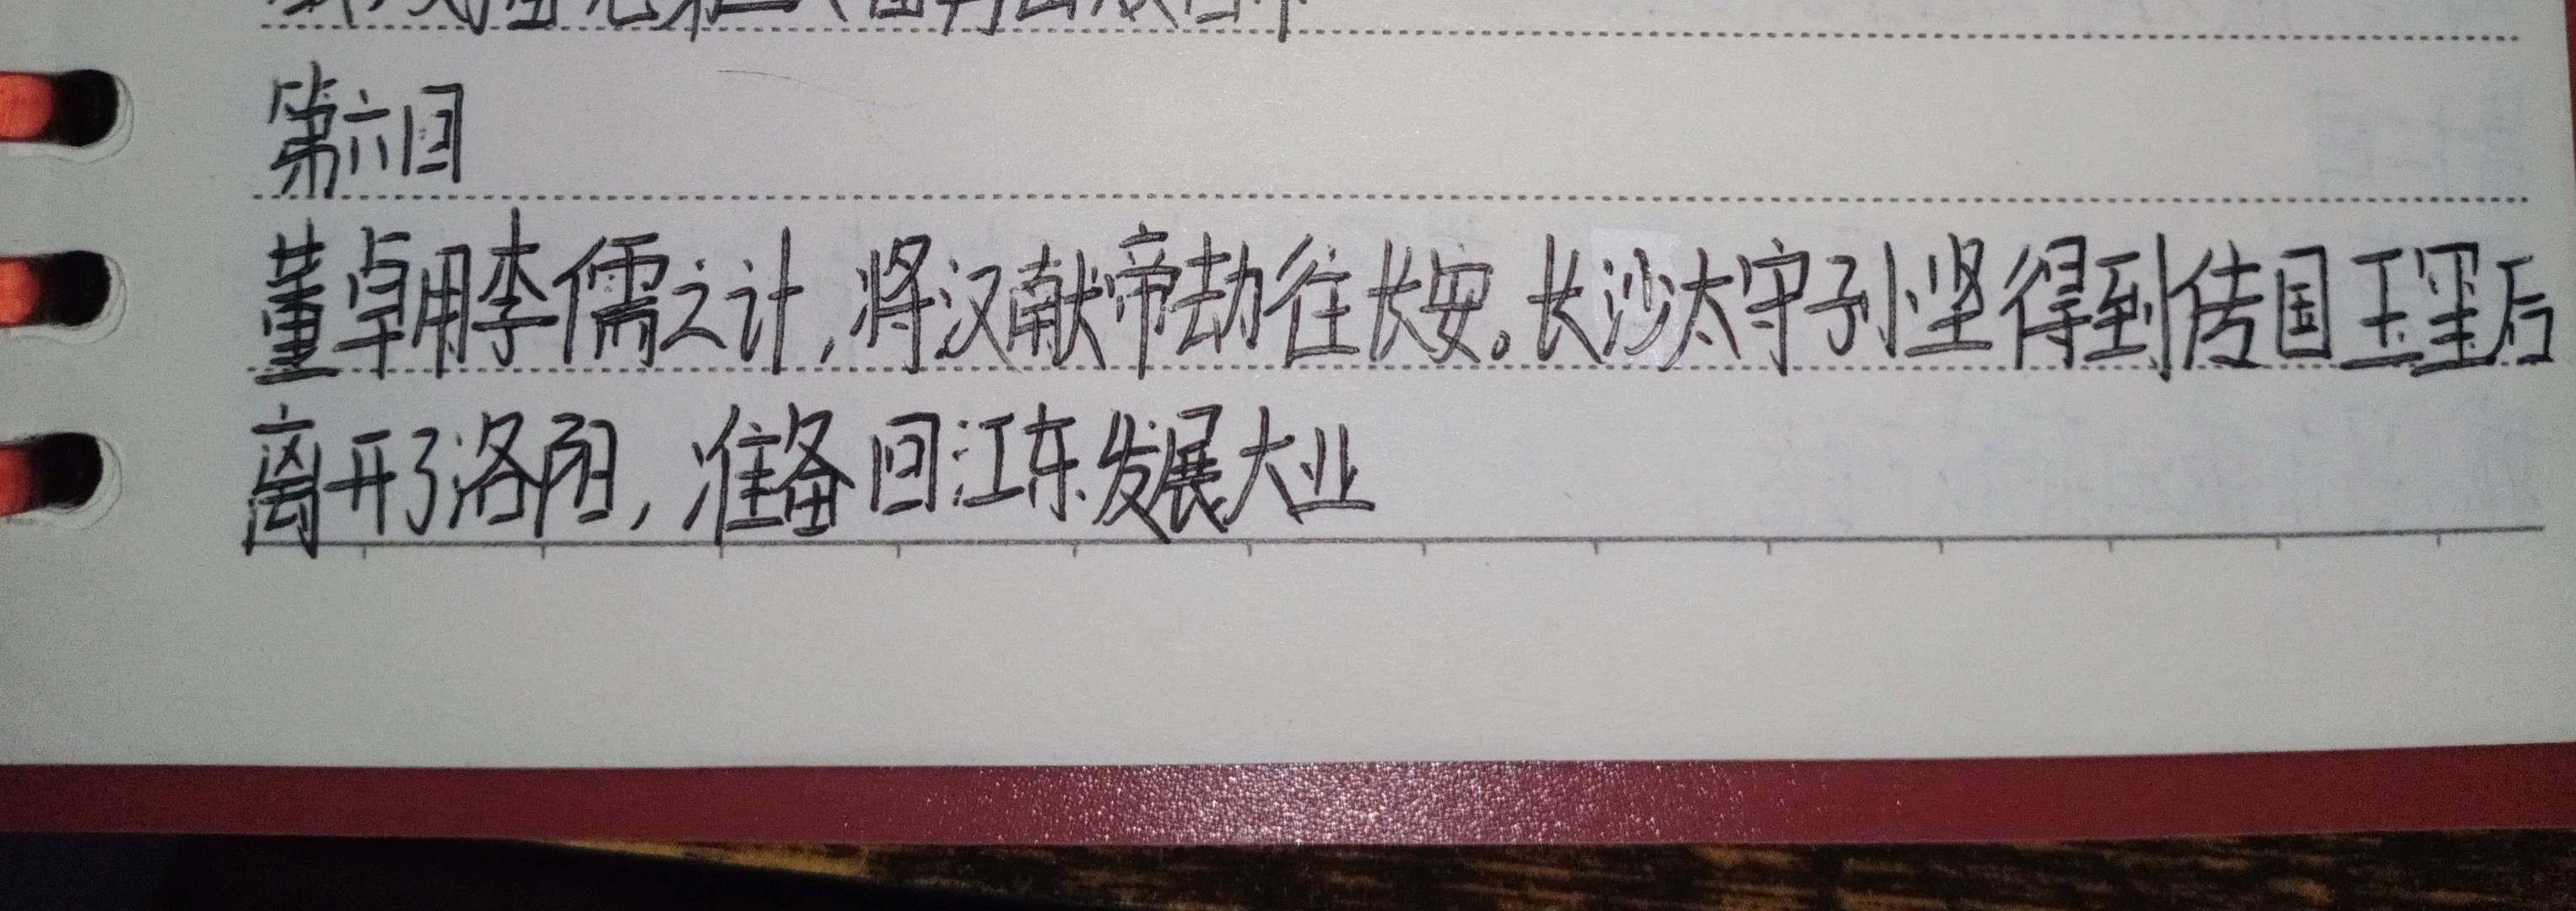 第六回
董卓用李儒之计,将汉献帝劫往长安。长沙太守孙坚得到传国玉玺后
离开了洛阳,准备回江东发展大业